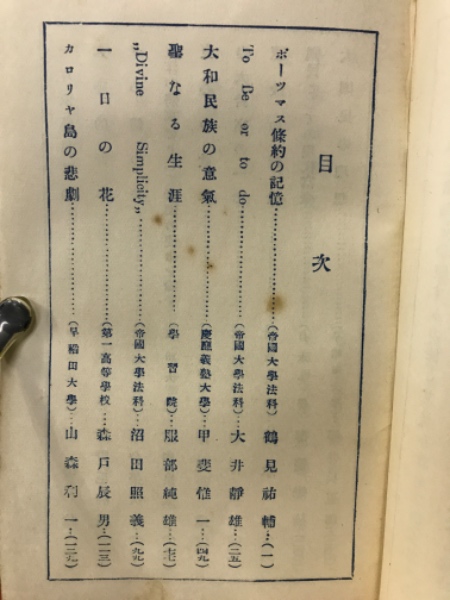 目次
ポーツマス條約の記憶………(帝國大學法科)鶴見祐輔…(一)
To be or to do………(帝國大學法科)…大井靜雄…(二五)
大和民族の意氣………(慶應義塾大學)…甲斐惟一…(四九)
聖なる生涯………(學習院)…服部純雄…(七七)
„Divine Simplicity„………(帝國大學法科)…沼田照義…(九九)
一日の花………(第一高等學校)…森戸辰男…(一一三)
カロリヤ島の悲劇………(早稻田大學)…山森利一…(一二九)